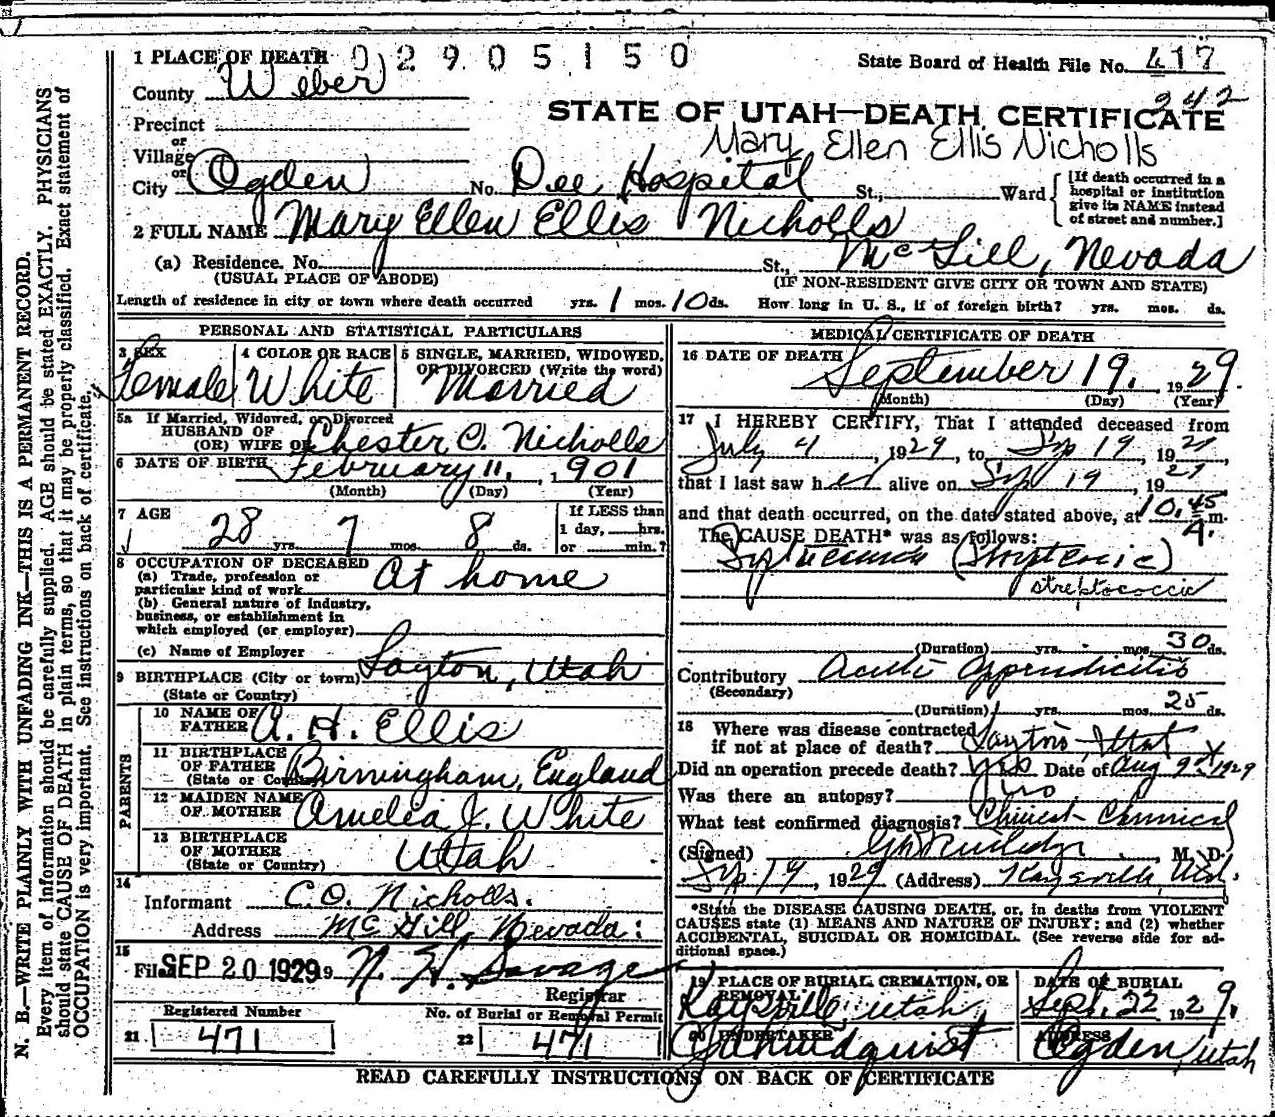 1 PLACE OF DEATH 02905150
State Board of Health File No. 417
County Weber
242
STATE OF UTAH—DEATH CERTIFICATE
Precinct
or
Village
Mary Ellen Ellis Nicholls
or
City Ogden No. Dee Hospital St., Ward
[If death occurred in a hospital or institution give its NAME instead of street and number.]
2 FULL NAME Mary Ellen Ellis Nicholls
(a) Residence. No. St., McGill, Nevada
(USUAL PLACE OF ABODE) (IF NON-RESIDENT GIVE CITY OR TOWN AND STATE)
Length of residence in city or town where death occurred yrs. 1 mos. 10 ds. How long in U. S., if of foreign birth? yrs. mos. ds.
PERSONAL AND STATISTICAL PARTICULARS
3 SEX Female
4 COLOR OR RACE White
5 SINGLE, MARRIED, WIDOWED, OR DIVORCED (Write the word) Married
5a If Married, Widowed, or Divorced
HUSBAND OF
(OR) WIFE OF Chester O. Nicholls
6 DATE OF BIRTH February 11, 1901
(Month) (Day) (Year)
7 AGE 28 yrs. 7 mos. 8 ds.
If LESS than
1 day, hrs.
or min.?
8 OCCUPATION OF DECEASED
(a) Trade, profession or
particular kind of work At home
(b) General nature of Industry,
business, or establishment in
which employed (or employer)
(c) Name of Employer
9 BIRTHPLACE (City or town) Layton, Utah
(State or Country)
PARENTS
10 NAME OF
FATHER A. H. Ellis
11 BIRTHPLACE
OF FATHER
(State or Country) Birmingham, England
12 MAIDEN NAME
OF MOTHER Amelia J. White
13 BIRTHPLACE
OF MOTHER
(State or Country) Utah
14
Informant C.O. Nicholls.
Address McGill, Nevada.
15
Filed SEP 20 1929 N. H. Savage
Registrar
Registered Number
21 471
No. of Burial or Removal Permit
22 471
MEDICAL CERTIFICATE OF DEATH
16 DATE OF DEATH September 19, 1929.
(Month) (Day) (Year)
17 I HEREBY CERTIFY, That I attended deceased from
July 4, 1929, to Sep 19, 1929
that I last saw her alive on Sep 19, 1929
and that death occurred, on the date stated above, at 10.45 A. m.
The CAUSE DEATH* was as follows:
streptococcic
(Duration) yrs. mos. 30 ds.
Contributory Acute Appendicitis
(Secondary)
(Duration) yrs. mos. 25 ds.
18 Where was disease contracted
if not at place of death? Layton, Utah
Did an operation precede death? Yes Date of Aug 9 1929
Was there an autopsy? No
What test confirmed diagnosis? Chemical
(Signed) , M. D.
Sep 19, 1929 (Address) Kaysville, Utah.
*State the DISEASE CAUSING DEATH, or, in deaths from VIOLENT
CAUSES state (1) MEANS AND NATURE OF INJURY; and (2) whether
ACCIDENTAL, SUICIDAL OR HOMICIDAL. (See reverse side for ad-
ditional space.)
19 PLACE OF BURIAL, CREMATION, OR
REMOVAL Kaysville, Utah
DATE OF BURIAL
Sept. 22 1929.
20 UNDERTAKER Lindquist
ADDRESS
Ogden, Utah
READ CAREFULLY INSTRUCTIONS ON BACK OF CERTIFICATE
N. B.—WRITE PLAINLY WITH UNFADING INK—THIS IS A PERMANENT RECORD.
Every item of information should be carefully supplied. AGE should be stated EXACTLY. PHYSICIANS
should state CAUSE OF DEATH in plain terms, so that it may be properly classified. Exact statement of
OCCUPATION is very important. See instructions on back of certificate.